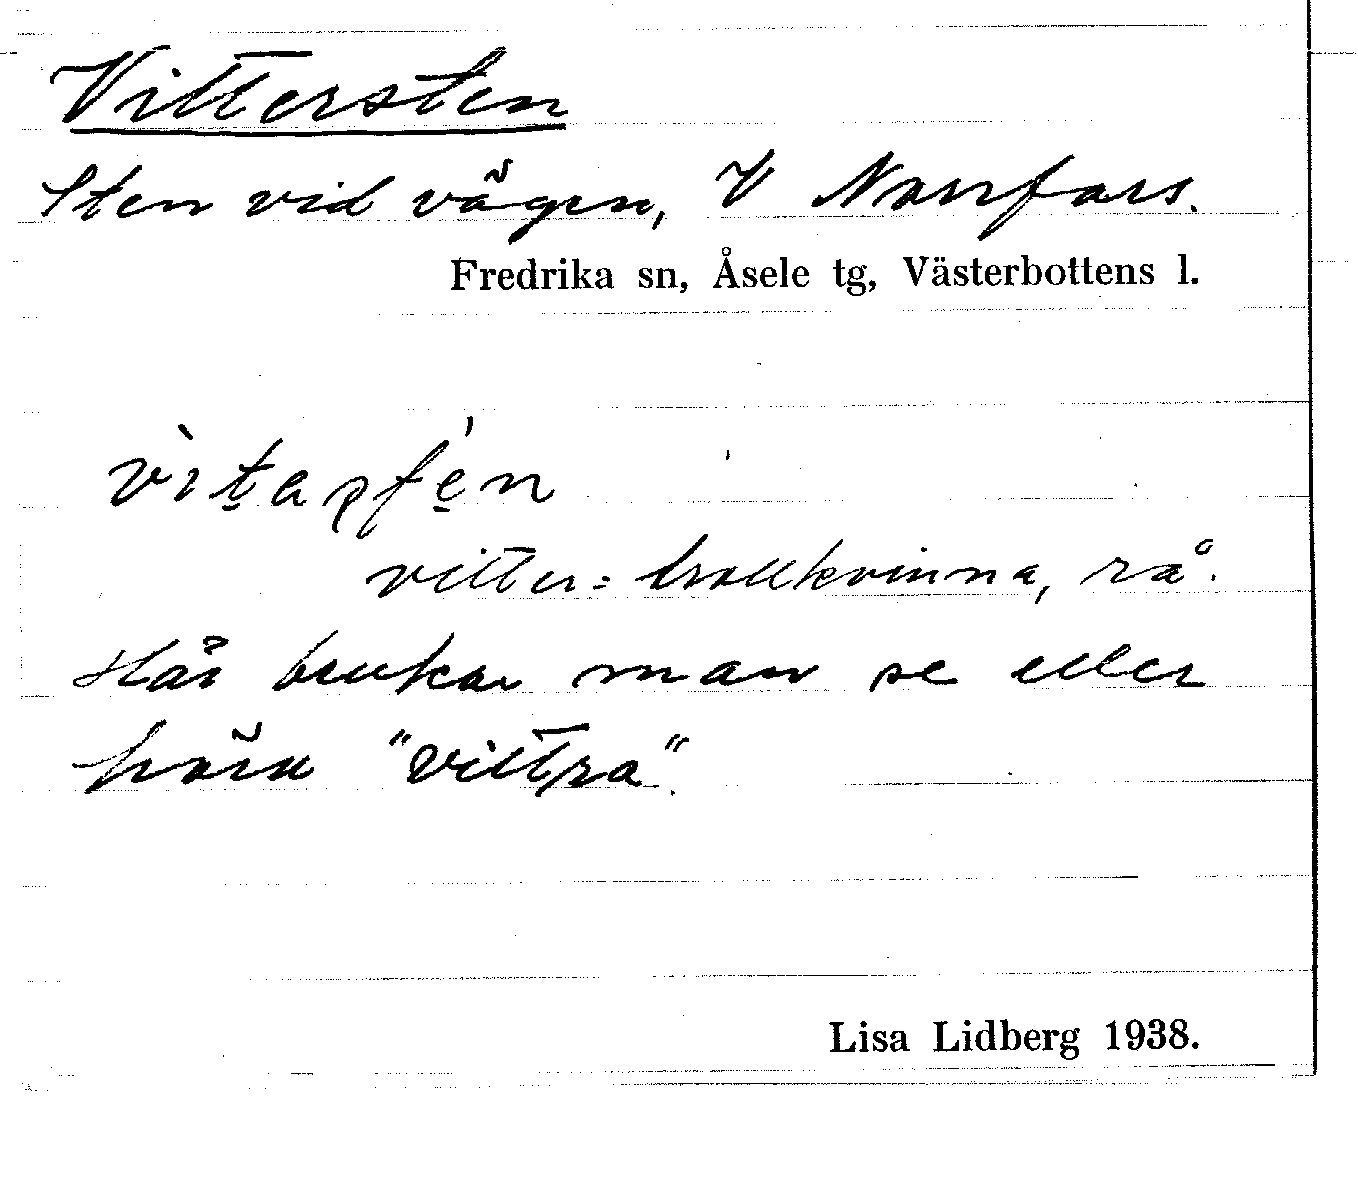 Vittersten
Sten vid vägen, V Norrfors.
Fredrika sn, Åsele tg, Västerbottens l.
vitter = trollkvinna, rå.
Här brukar man se eller
höra "vittra".
Lisa Lidberg 1938.